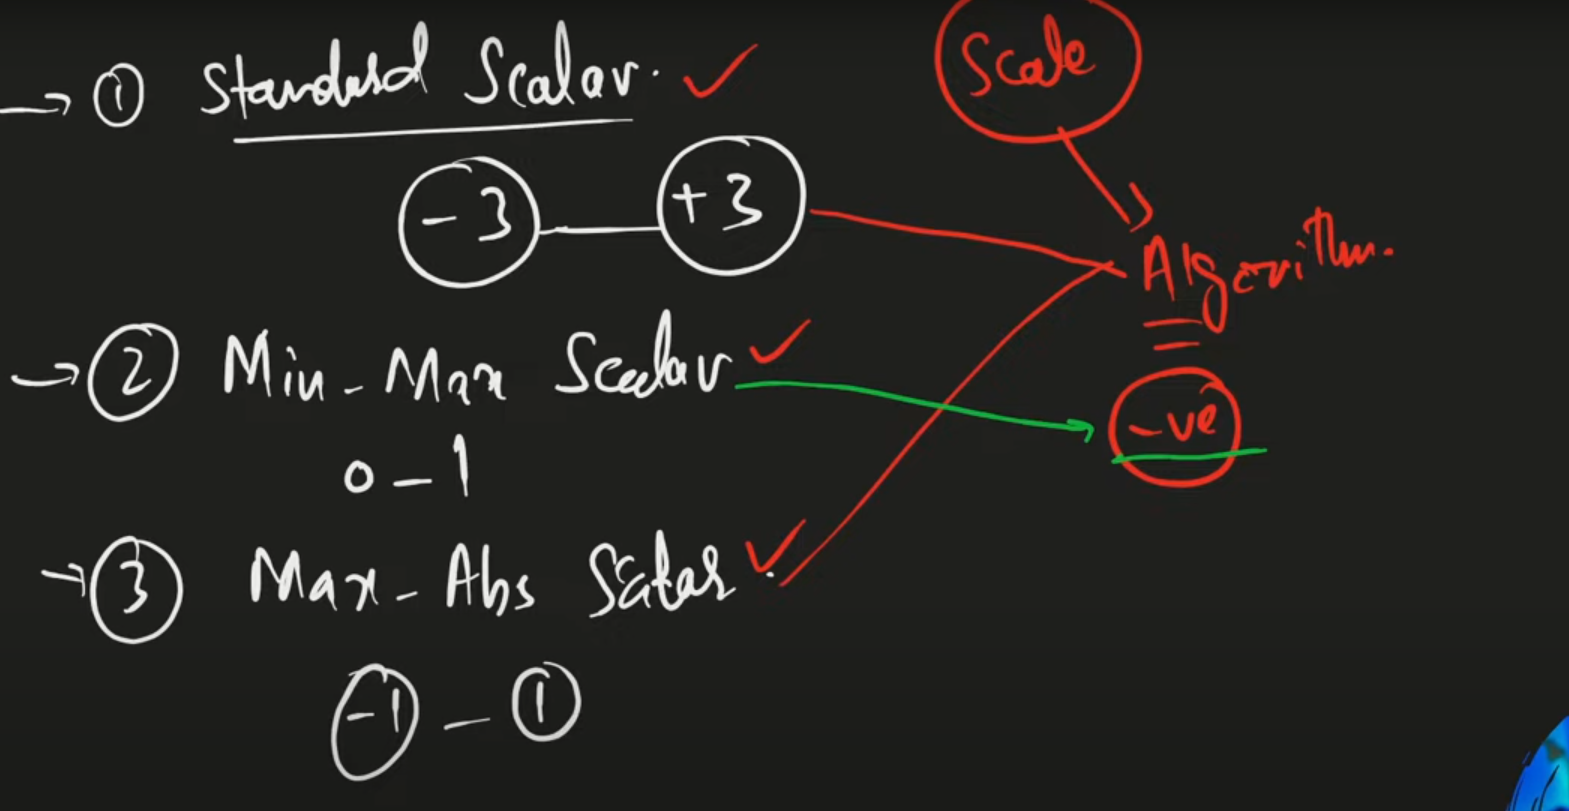 → ① Standard Scalar. ✓
-3 — +3
→ ② Min-Max Scalar ✓
0-1
→ ③ Max-Abs Scalar ✓
-1 — 1
Scale
Algorithm.
-ve